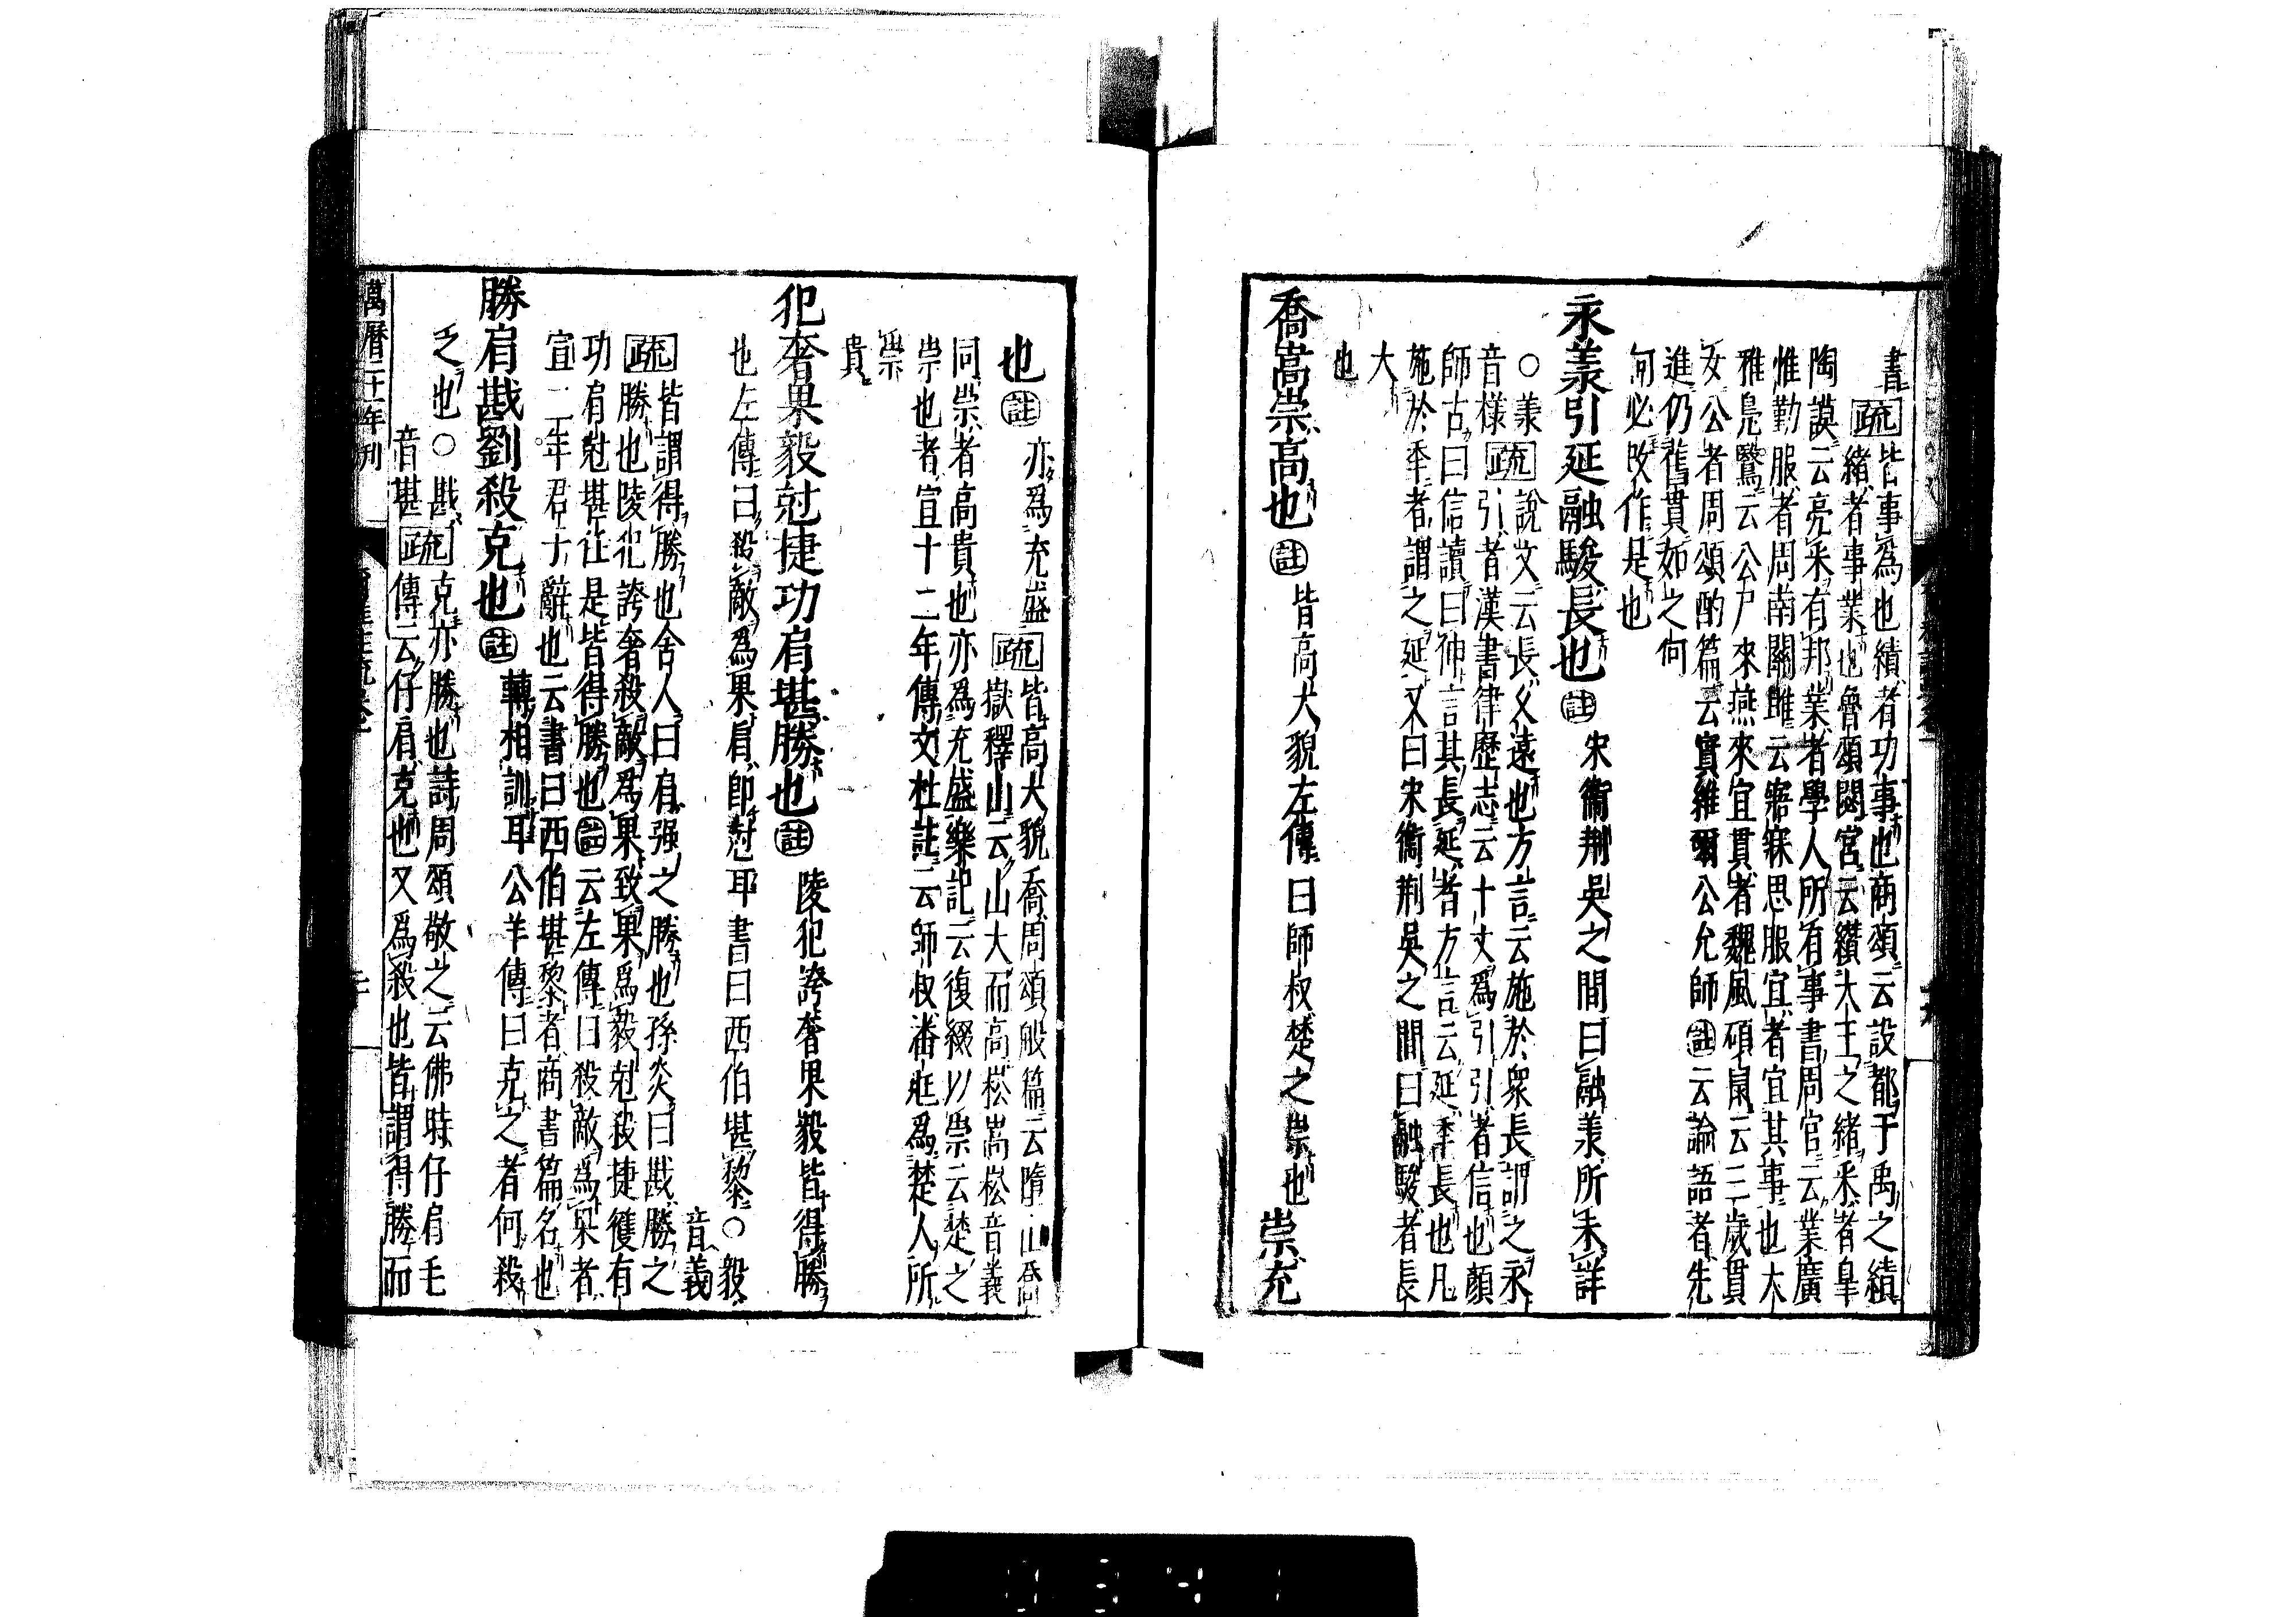 書疏皆事為也績者功事也商頌云設都于禹之績
緒者事業也魯頌閟宮云纘大王之緒釆者皐
陶謨云亮釆有邦業者學人所有事書周官云業廣
惟勤服者周南關雎云寤寐思服宜者宜其事也大
雅鳧鷖云公尸來燕來宜貫者魏風碩鼠云三歲貫
女公者周頌酌篇云實維爾公允師註云論語者先
進仍舊貫如之何
何必改作是也
永羕引延融駿長也註宋衞荆吳之間曰融羕所未詳
○羕疏說文云長久遠也方言云施於衆長謂之永
音樣引者漢書律歷志云十丈爲引引者信也顏
師古曰信讀曰伸言其長延者方言云延年長也凡
施於年者謂之延又曰宋衞荆吳之間曰融駿者長
大
也
喬嵩崇高也註皆高大貌左傳曰師叔楚之崇也崇充
也註亦爲充盛疏皆高大貌喬周頌般篇云墮山喬
嶽釋山云山大而高崧嵩崧音義
同崇者高貴也亦爲充盛樂記云復綴以崇云楚之
崇也者宣十二年傳文杜註云師叔潘尫爲楚人所
崇
貴
犯奢果毅剋捷功肩堪勝也註陵犯誇奢果毅皆得勝
也左傳曰殺敵爲果肩即剋耳書曰西伯堪黎○毅
音義
疏皆謂得勝也舍人曰有强之勝也孫炎曰戡勝之
勝也陵犯誇奢殺敵爲果致果爲毅剋殺捷獲有
功肩剋堪任是皆得勝也註云左傳曰殺敵爲果者
宣二年君子辭也云書曰西伯堪黎者商書篇名也
勝肩戡劉殺克也註轉相訓耳公羊傳曰克之者何殺
之也○戡疏克亦勝也詩周頌敬之云佛時仔肩毛
音堪傳云仔肩克也又爲殺也皆謂得勝而
萬曆二十一年刊